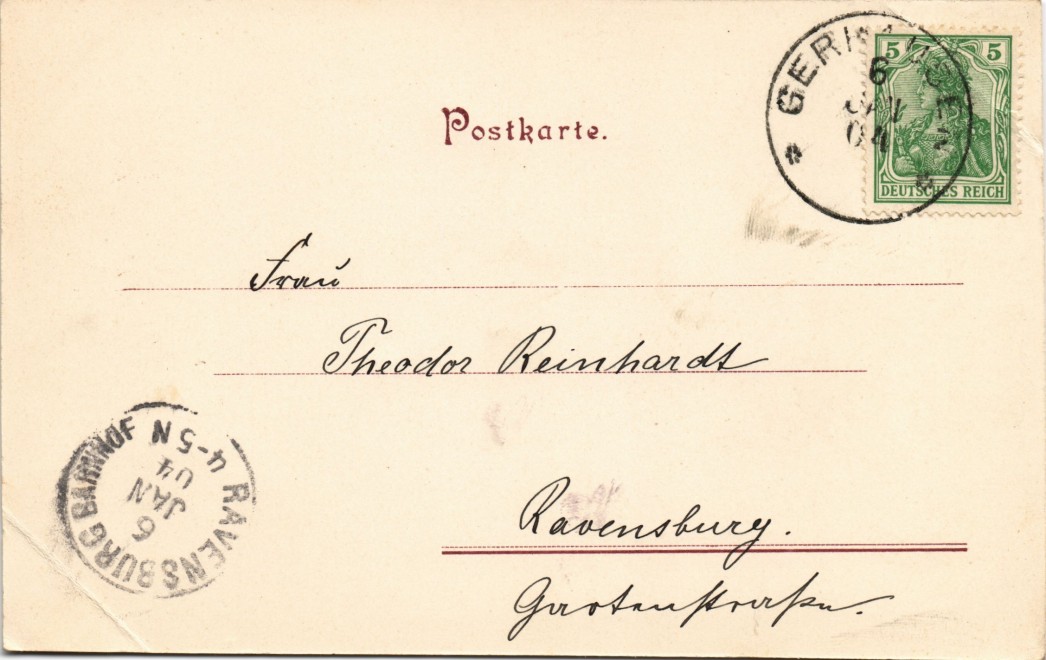 5 5
DEUTSCHES REICH
6
JAN
04
Postkarte.
Frau
Theodor Reinhardt
Ravensburg.
Gartenstraße.
RAVENSBURG BAHNHOF
6
JAN
04
4-5 N